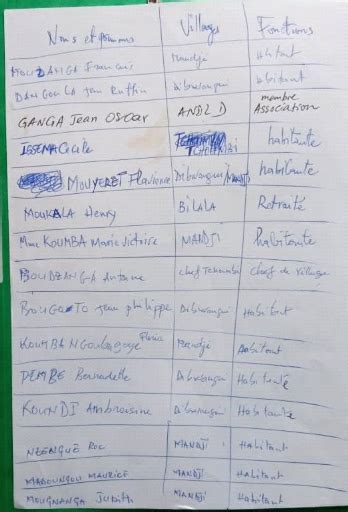 Noms et prénoms Villages Fonctions
MOUDZANGA Francis Mandji Habitant
DANGOULA Jean Ruffin Dibwangui Habitant
GANGA Jean OSCAR ANDZD membre Association
ISSEMA Cécile TCHEMBI habitante
MOUYEBET Flavienne Dibwangui MANDJI habitante
MOUKALA Henry BILALA Retraité
Mme KOUMBA Marie Victoire MANDJI Habitante
BOUDZANGA Antoine chef Tchemba Chef de village
BOUGOTO Jean philippe Dibwangui Habitant
KOUMBA Mandji Habitant
DEMBE Bernadette Dibwangui Habitante
KOUNDI Ambroisine Dibwangui Habitante
NZENGUE Roc MANDJI Habitant
MABOUNGOU MAURICE MANDJI Habitant
MOUGNANGA Judith MANDJI Habitant